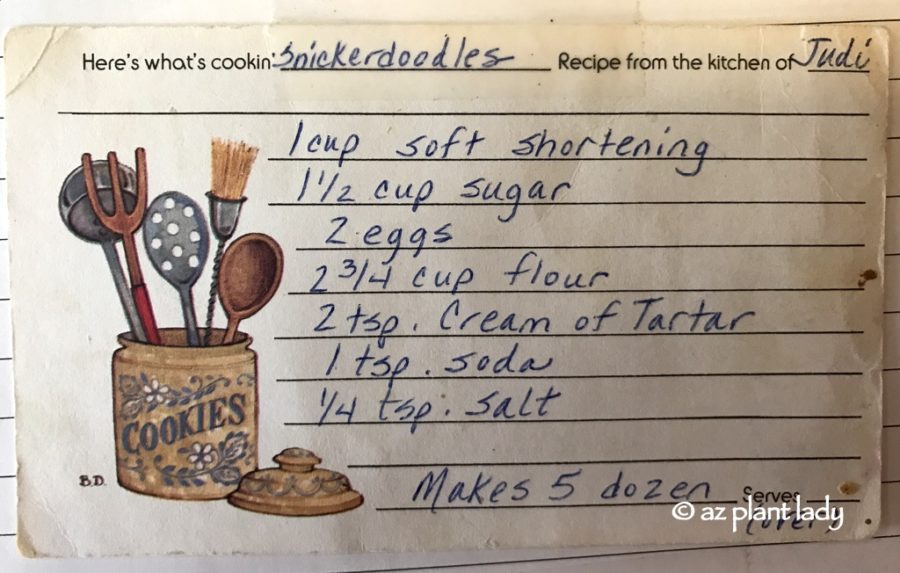 Here's what's cookin' Snickerdoodles Recipe from the kitchen of Judi
1 cup soft shortening
1 1/2 cup sugar
2 eggs
2 3/4 cup flour
2 tsp. Cream of Tartar
1 tsp. soda
1/4 tsp. salt
COOKIES
B.D.
Makes 5 dozen Serves
© az plant lady
(over)